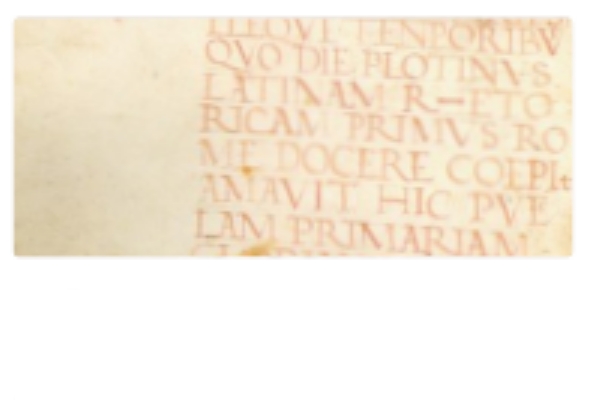 TENPORIBV
QVO DIE PLOTINVS
LATINAM R—ETO
RICAM PRIMVS RO
ME DOCERE COEPIt
AMAVIT HIC PVE
LAM PRIMARIAM